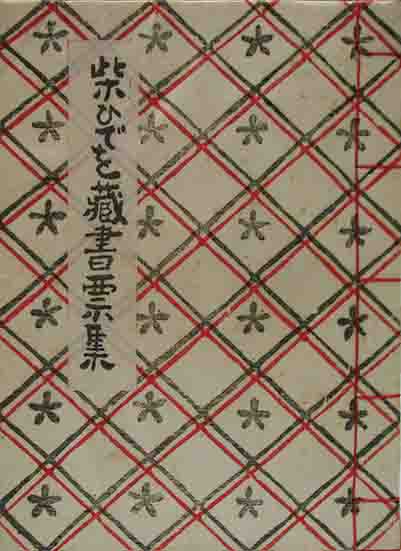 柴ひでを藏書票集